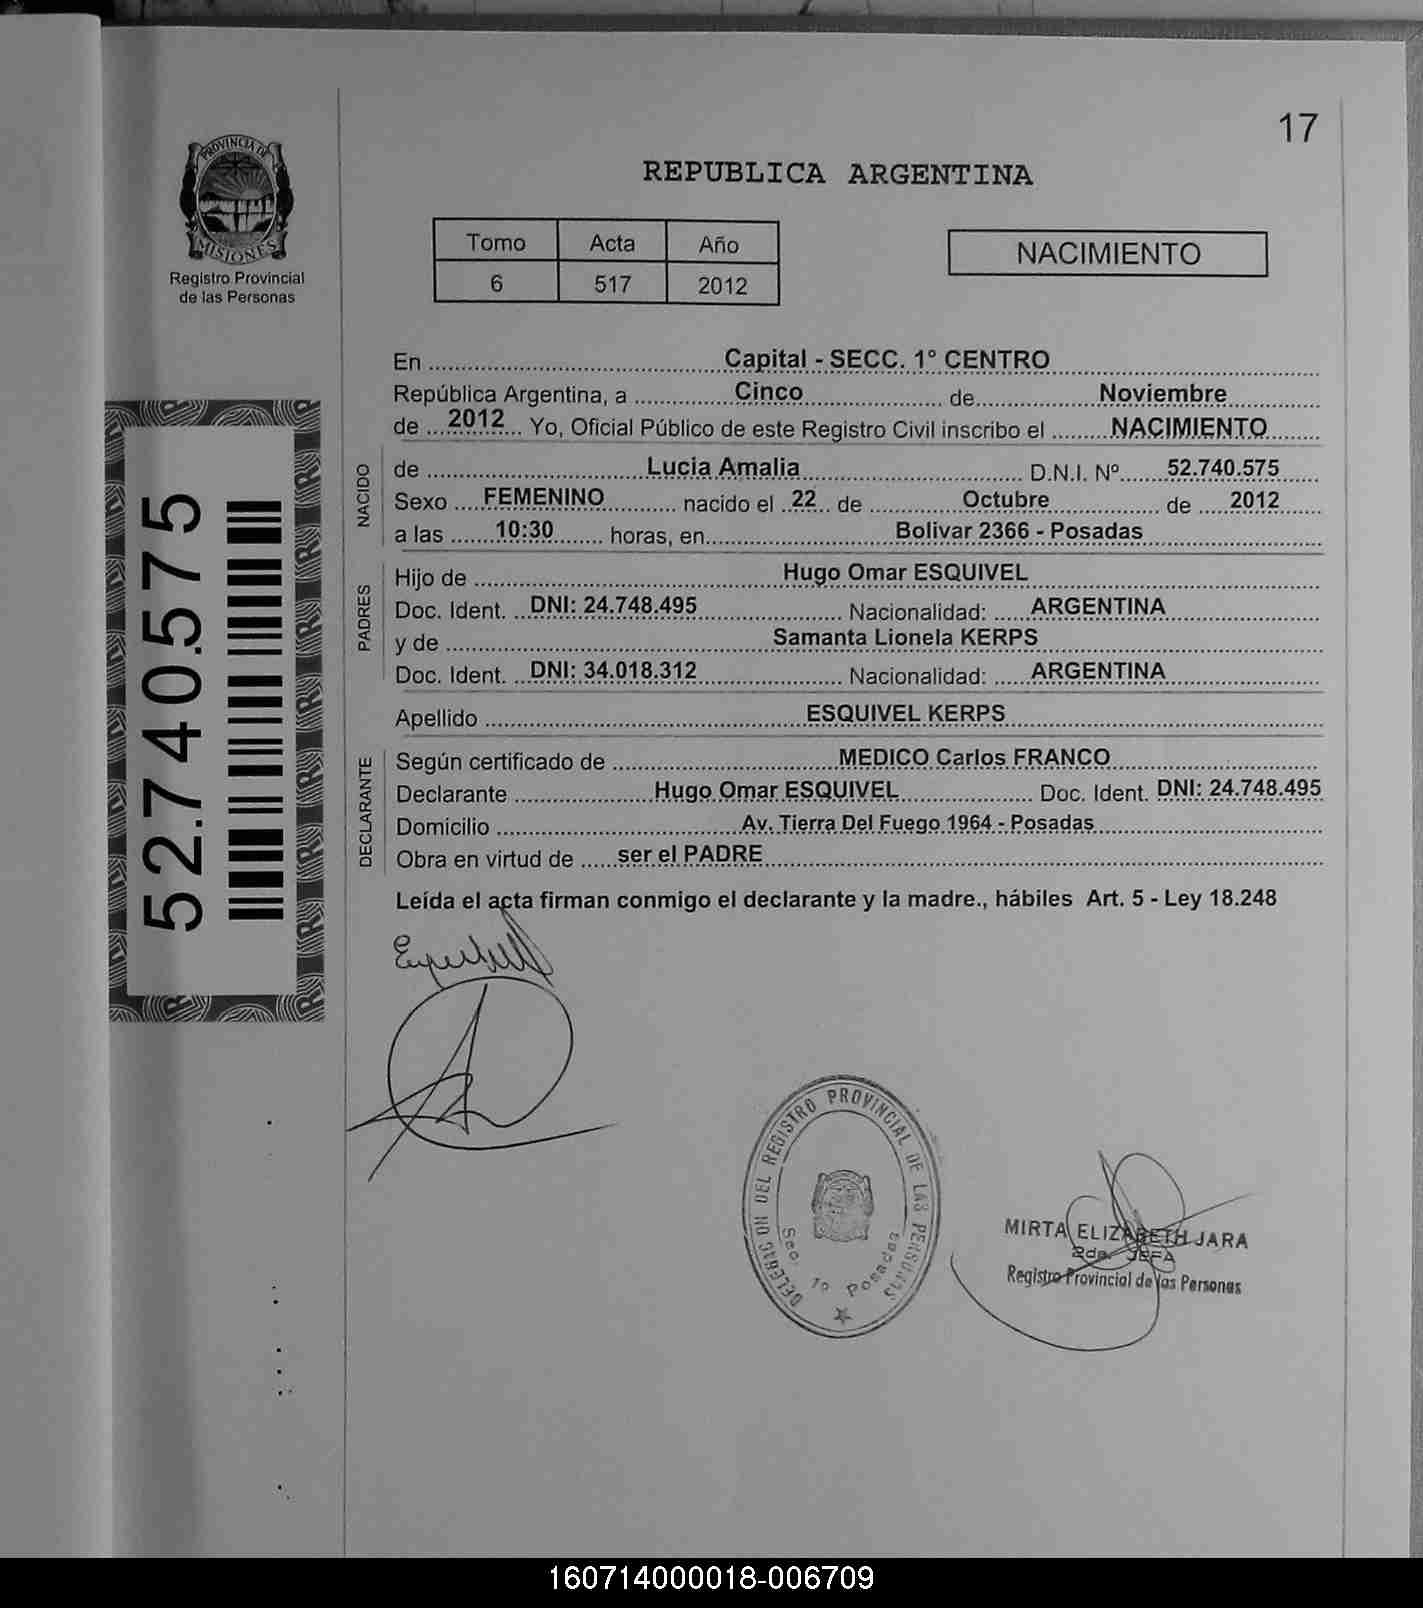 17
PROVINCIA DE
MISIONES
Registro Provincial
de las Personas
REPUBLICA ARGENTINA
Tomo Acta Año
6 517 2012
NACIMIENTO
En Capital - SECC. 1° CENTRO
República Argentina, a Cinco de Noviembre
de 2012 Yo, Oficial Público de este Registro Civil inscribo el NACIMIENTO
NACIDO
de Lucia Amalia D.N.I. Nº 52.740.575
Sexo FEMENINO nacido el 22 de Octubre de 2012
a las 10:30 horas, en Bolivar 2366 - Posadas
PADRES
Hijo de Hugo Omar ESQUIVEL
Doc. Ident. DNI: 24.748.495 Nacionalidad: ARGENTINA
y de Samanta Lionela KERPS
Doc. Ident. DNI: 34.018.312 Nacionalidad: ARGENTINA
Apellido ESQUIVEL KERPS
DECLARANTE
Según certificado de MEDICO Carlos FRANCO
Declarante Hugo Omar ESQUIVEL Doc. Ident. DNI: 24.748.495
Domicilio Av. Tierra Del Fuego 1964 - Posadas
Obra en virtud de ser el PADRE
Leída el acta firman conmigo el declarante y la madre., hábiles Art. 5 - Ley 18.248
52.740.575
DEL REGISTRO PROVINCIAL DE LAS PERSONAS
Sec. 1º Posadas
MIRTA ELIZABETH JARA
2da. JEFA
Registro Provincial de las Personas
160714000018-006709